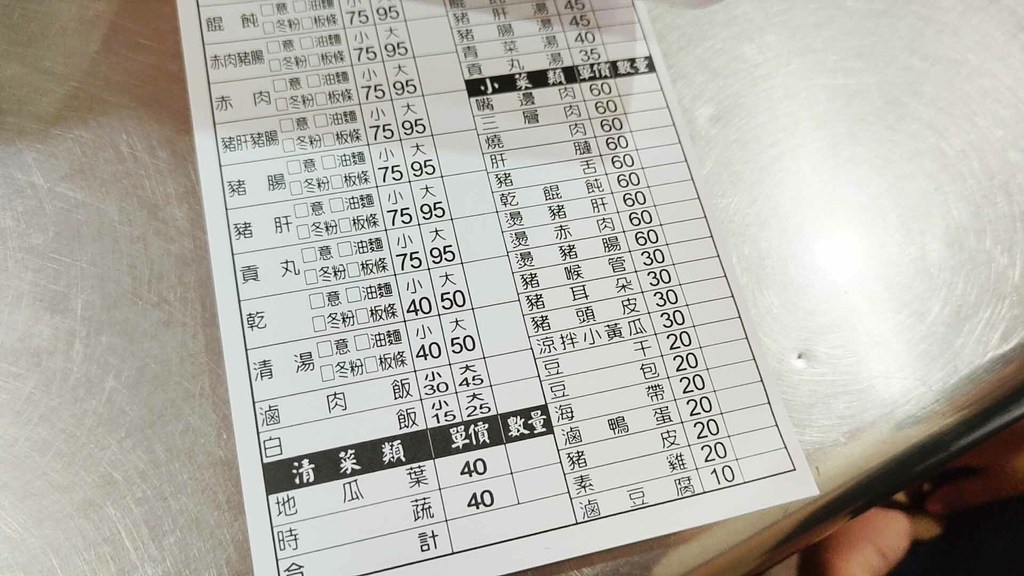 餛飩 □意 □油麵 小 大
□冬粉 □板條 75 95
赤肉豬腸 □意 □油麵 小 大
□冬粉 □板條 75 95
赤肉 □意 □油麵 小 大
□冬粉 □板條 75 95
豬肝豬腸 □意 □油麵 小 大
□冬粉 □板條 75 95
豬腸 □意 □油麵 小 大
□冬粉 □板條 75 95
豬肝 □意 □油麵 小 大
□冬粉 □板條 75 95
貢丸 □意 □油麵 小 大
□冬粉 □板條 75 95
乾 □意 □油麵 小 大
□冬粉 □板條 40 50
清湯 □意 □油麵 小 大
□冬粉 □板條 40 50
滷肉飯 小30 大45
白飯 小15 大25
清菜類 單價 數量
地瓜葉 40
時蔬 40
合計
豬肝湯 45
豬腸湯 45
青菜湯 40
貢丸湯 35
小菜類 單價 數量
嘴邊肉 60
三層肉 60
燒肉 60
肝膶 60
豬舌 60
乾餛飩 60
燙豬肝 60
燙赤肉 60
燙豬腸 60
豬喉管 30
豬耳朵 30
豬頭皮 30
涼拌小黃瓜 30
豆干 20
豆包 20
海帶 20
滷鴨蛋 20
豬皮 20
素雞 20
滷豆腐 10